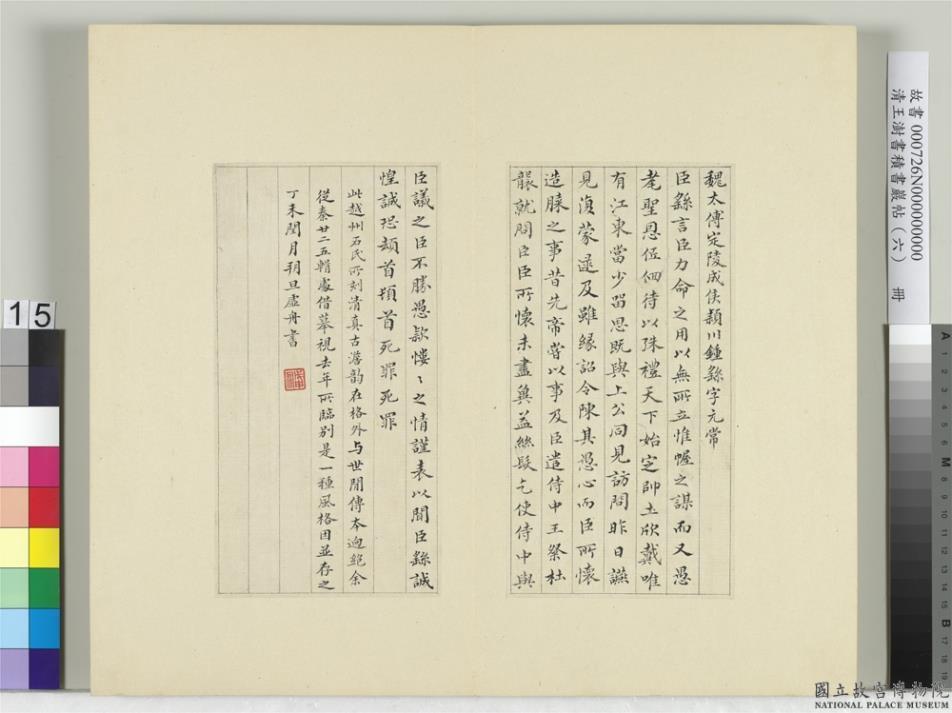 魏太傅定陵成侯潁川鍾繇字元常
臣繇言臣力命之用以無所立惟幄之謀而又愚
耄聖恩低佪待以殊禮天下始定師土欣戴唯
有江東當少留思既與上公同見訪問昨日讌
見復蒙逮及雖緣詔令陳其愚心而臣所懷
造膝之事昔先帝嘗以事及臣遣侍中王粲杜
襲就問臣臣所懷未盡冀益絲髮乞使侍中與
臣議之臣不勝愚款慺〻之情謹表以聞臣繇誠
惶誠恐頓首頓首死罪死罪
此越州石氏所刻清真古澹韵在格外与世閒傳本迥絕余
從秦廿二五輯處借摹視去年所臨別是一種風格因並存之
丁未閏月朔旦虛舟書
故書 000726N000000000
清王澍書積書巖帖（六） 冊
15
A 1 2 3 4 5 6 M 8 9 10 11 12 13 14 15 B 17 18 19
國立故宮博物院
NATIONAL PALACE MUSEUM